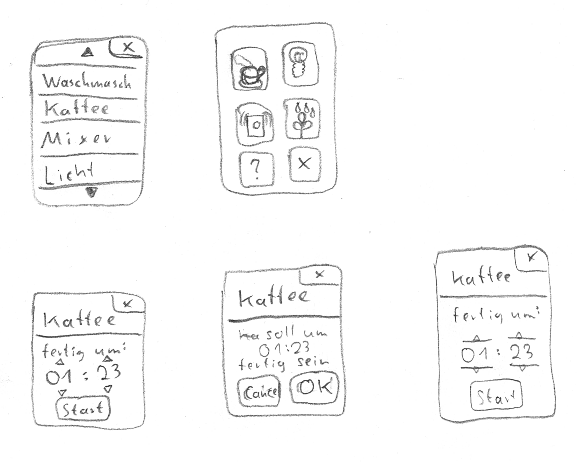 X
Waschmasch
Kaffee
Mixer
Licht
?
X
X
Kaffee
fertig um:
01 : 23
Start
X
Kaffee
soll um
01:23
fertig sein
Cancel
OK
X
Kaffee
fertig um:
01 : 23
Start